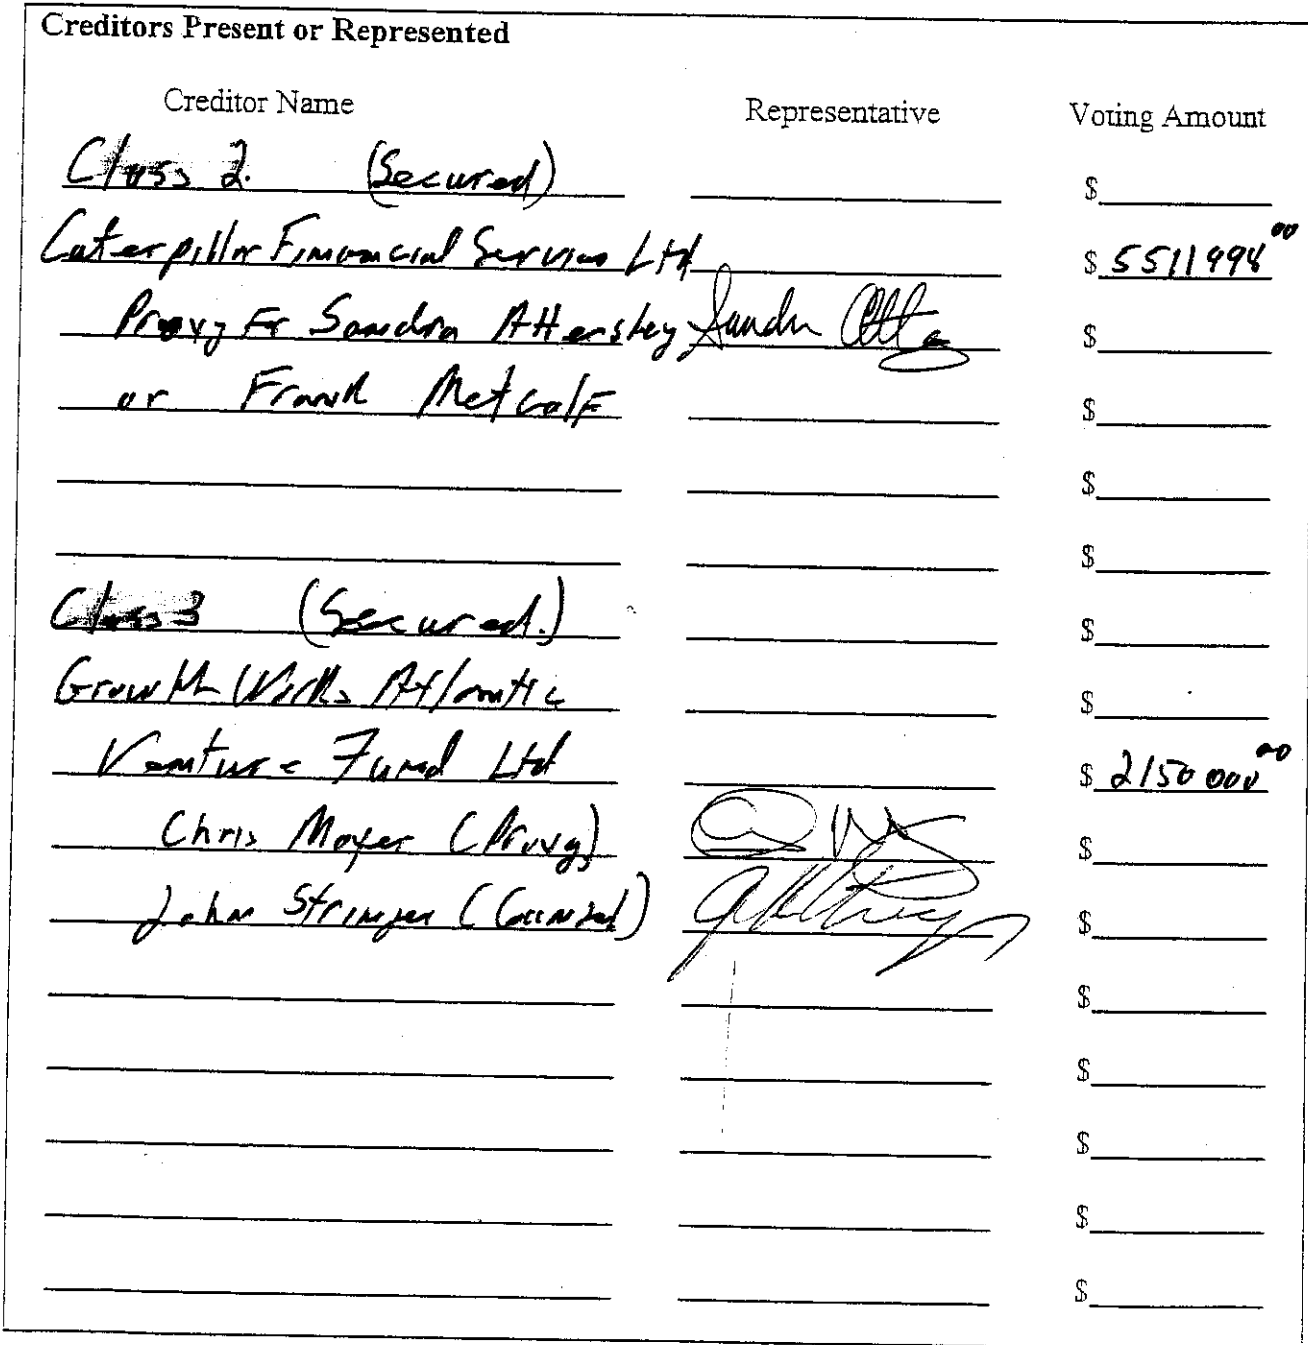 Creditors Present or Represented
Creditor Name Representative Voting Amount
Class 2. (Secured) $
Caterpillar Financial Services Ltd $ 5511994 00
Proxy For Sandra Attersley $
or Frank Metcalf $
$
$
Class 3 (Secured.) $
GrowthWorks Atlantic $
Venture Fund Ltd $ 2150 000 00
Chris Moyer (Proxy) $
John Stringer (Counsel) $
$
$
$
$
$